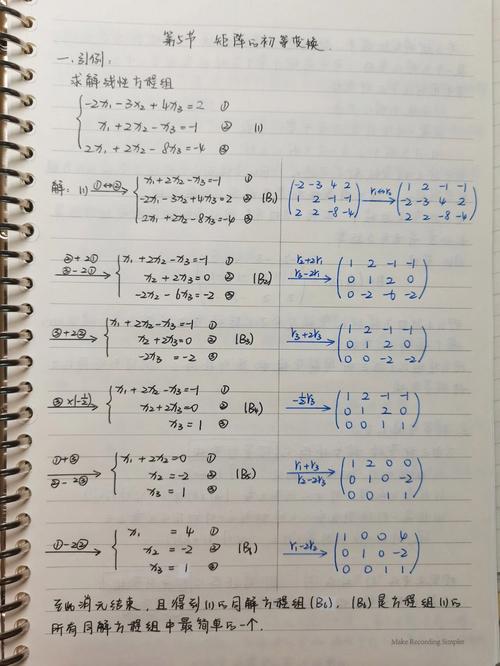 第5节 矩阵的初等变换.
一.引例:
求解线性方程组
{ -2x₁-3x₂+4x₃=2 ①
x₁+2x₂-x₃=-1 ② (1)
2x₁+2x₂-8x₃=-4 ③
解: (1) ①↔② { x₁+2x₂-x₃=-1 ①
-2x₁-3x₂+4x₃=2 ② (B₁)
2x₁+2x₂-8x₃=-4 ③
(-2 -3 4 2
1 2 -1 -1
2 2 -8 -4) r₁↔r₂ (1 2 -1 -1
-2 -3 4 2
2 2 -8 -4)
②+2① ③-2① { x₁+2x₂-x₃=-1 ①
x₂+2x₃=0 ② (B₂)
-2x₂-6x₃=-2 ③
r₂+2r₁ r₃-2r₁ (1 2 -1 -1
0 1 2 0
0 -2 -6 -2)
③+2② { x₁+2x₂-x₃=-1 ①
x₂+2x₃=0 ② (B₃)
-2x₃=-2 ③
(1 2 -1 -1
0 1 2 0
0 0 -2 -2)
③×(-1/2) { x₁+2x₂-x₃=-1 ①
x₂+2x₃=0 ② (B₄)
x₃=1 ③
-½r₃ (1 2 -1 -1
0 1 2 0
0 0 1 1)
①+③ ②-2③ { x₁+2x₂=0 ①
x₂=-2 ② (B₅)
x₃=1 ③
r₁+r₃ r₂-2r₃ (1 2 0 0
0 1 0 -2
0 0 1 1)
①-2② { x₁=4 ①
x₂=-2 ②
x₃=1 ③
r₁-2r₂ (1 0 0 4
0 1 0 -2
0 0 1 1)
至此消元结束,且得到(1)的同解方程组(B₆),(B₆)是方程组(1)的
所有同解方程组中最简单的一个.
Make Recording Simpler